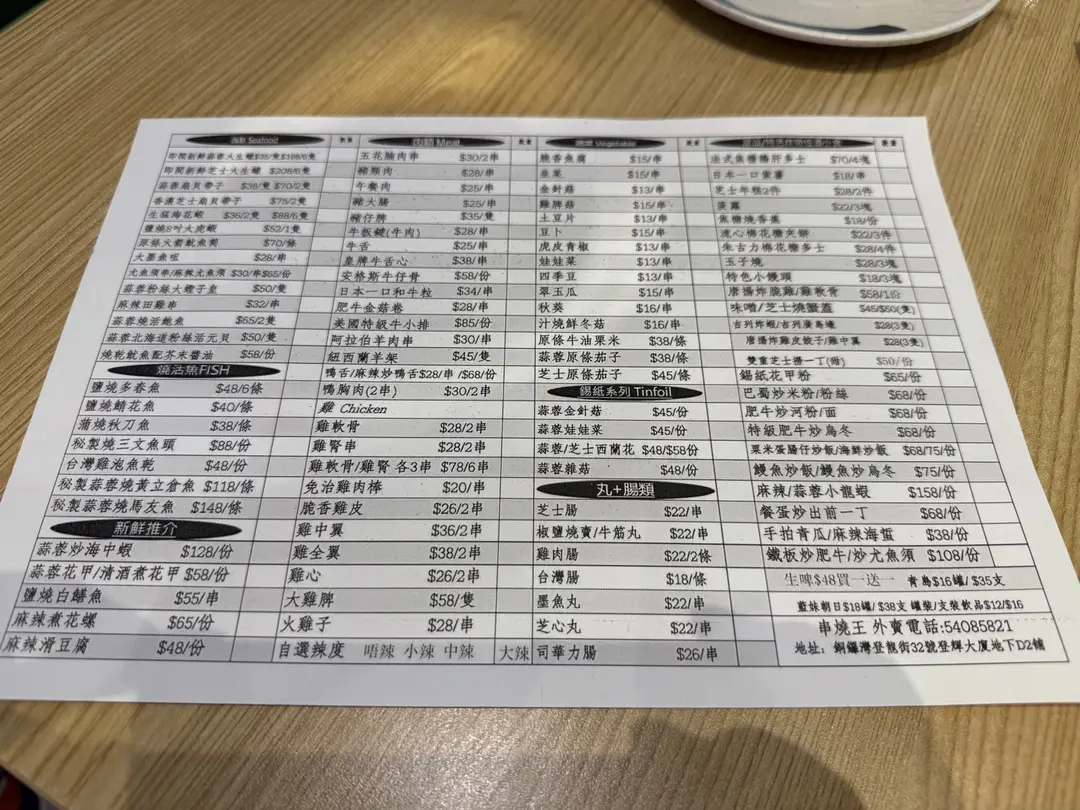 海鮮 Seafood
即開新鮮蒜蓉大生蠔$35/隻$188/6隻
即開新鮮芝士大生蠔 $208/6隻
蒜蓉扇貝帶子 $38/隻 $70/2隻
香濃芝士扇貝帶子 $75/2隻
生猛海花蝦 $36/2隻 $88/6隻
鹽燒8吋大虎蝦 $52/1隻
原條火箭魷魚筒 $70/條
大墨魚咀 $28/串
尤魚須串/麻辣尤魚須 $30/串$65/份
蒜蓉粉絲大蟶子皇 $50/隻
麻辣田雞串 $32/串
蒜蓉燒活鮑魚 $65/2隻
蒜蓉北海道粉絲活元貝 $50/隻
燒乾魷魚配芥末醬油 $58/份
燒活魚FISH
鹽燒多春魚 $48/6條
鹽燒鯖花魚 $40/條
蒲燒秋刀魚 $38/條
秘製燒三文魚頭 $88/份
台灣雞泡魚乾 $48/份
秘製蒜蓉燒黃立倉魚 $118/條
秘製蒜蓉燒馬友魚 $148/條
新鮮推介
蒜蓉炒海中蝦 $128/份
蒜蓉花甲/清酒煮花甲 $58/份
鹽燒白鱔魚 $55/串
麻辣煮花螺 $65/份
麻辣滑豆腐 $48/份
數量
肉類 Meat
五花腩肉串 $30/2串
豬頸肉 $28/串
午餐肉 $25/串
豬大腸 $25/串
豬仔髀 $35/隻
牛板鍵(牛肉) $28/串
牛舌 $25/串
皇牌牛舌心 $38/串
安格斯牛仔骨 $58/份
日本一口和牛粒 $34/串
肥牛金菇卷 $28/串
美國特級牛小排 $85/份
阿拉伯羊肉串 $30/串
紐西蘭羊架 $45/隻
鴨舌/麻辣炒鴨舌$28/串 /$68/份
鴨胸肉(2串) $30/2串
雞 Chicken
雞軟骨 $28/2串
雞腎串 $28/2串
雞軟骨/雞腎 各3串 $78/6串
免治雞肉棒 $20/串
脆香雞皮 $26/2串
雞中翼 $36/2串
雞全翼 $38/2串
雞心 $26/2串
大雞髀 $58/隻
火雞子 $28/串
自選辣度 唔辣 小辣 中辣 大辣
數量
蔬菜 Vegetable
脆香魚腐 $15/串
韭菜 $15/串
金針菇 $13/串
雞脾菇 $15/串
土豆片 $13/串
豆卜 $15/串
虎皮青椒 $13/串
娃娃菜 $13/串
四季豆 $13/串
翠玉瓜 $15/串
秋葵 $16/串
汁燒鮮冬菇 $16/串
原條牛油粟米 $38/條
蒜蓉原條茄子 $38/條
芝士原條茄子 $45/條
錫紙系列 Tinfoil
蒜蓉金針菇 $45/份
蒜蓉娃娃菜 $45/份
蒜蓉/芝士西蘭花 $48/$58份
蒜蓉雜菇 $48/份
丸+腸類
芝士腸 $22/串
椒鹽燒賣/牛筋丸 $22/串
雞肉腸 $22/2條
台灣腸 $18/條
墨魚丸 $22/串
芝心丸 $22/串
司華力腸 $26/串
數量
法式焦糖鵝肝多士 $70/4塊
日本一口蕃薯 $18/串
芝士年糕2件 $28/2件
菠蘿 $22/3塊
焦糖燒香蕉 $18/份
流心棉花糖夾餅 $22/3件
朱古力棉花糖多士 $28/4件
玉子燒 $28/3塊
特色小饅頭 $18/3塊
唐揚炸脆雞/雞軟骨 $58/1份
味噌/芝士燒蟹蓋 $45/$50(隻)
吉列炸蝦/吉列廣島蠔 $28(3隻)
唐揚炸雞皮餃子/雞中翼 $28(3隻)
雙重芝士撈一丁(辣) $50/份
錫紙花甲粉 $65/份
巴蜀炒米粉/粉絲 $68/份
肥牛炒河粉/面 $68/份
特級肥牛炒烏冬 $68/份
粟米蛋腸仔炒飯/海鮮炒飯 $68/75/份
鰻魚炒飯/鰻魚炒烏冬 $75/份
麻辣/蒜蓉小龍蝦 $158/份
餐蛋炒出前一丁 $68/份
手拍青瓜/麻辣海蜇 $38/份
鐵板炒肥牛/炒尤魚須 $108/份
生啤$48買一送一 青島$16罐/ $35支
藍妹朝日$18罐/ $38支 罐裝/支裝飲品$12/$16
串燒王 外賣電話:54085821
地址: 銅鑼灣登龍街32號登輝大廈地下D2舖